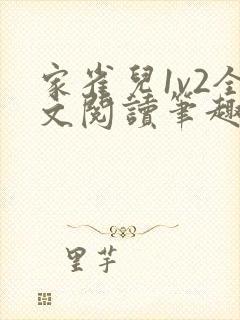 家雀兒1v2全
文閱讀筆趣
里芋